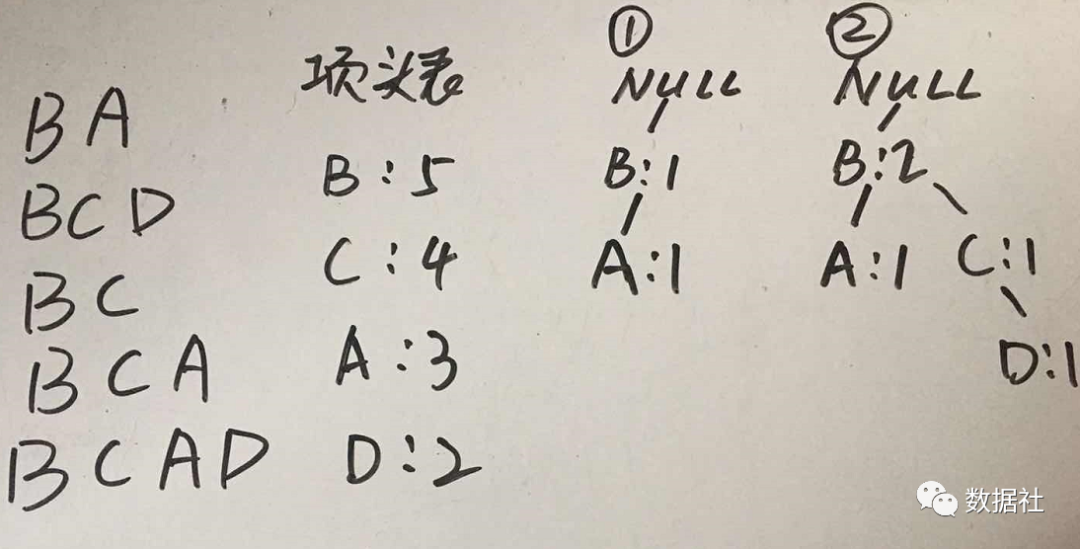 BA
BCD
BC
BCA
BCAD
项头表
B:5
C:4
A:3
D:2
①
NULL
B:1
A:1
②
NULL
B:2
A:1 C:1
D:1
数据社